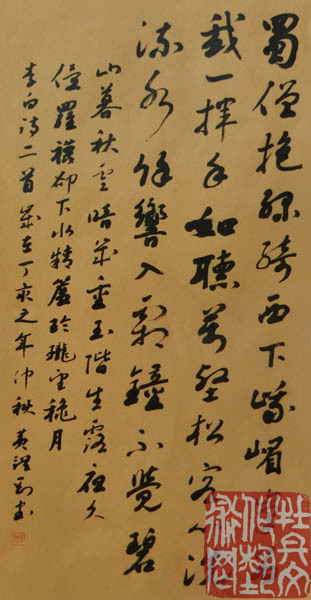 蜀僧抱綠綺西下峨嵋
我一揮手如聽萬壑松客心洗
流水餘響入霜鐘不覺碧
山暮秋雲暗幾重玉階生露夜久
侵羅襪却下水精簾玲瓏望穐月
李白詩二首歲在丁亥之年仲秋黃書